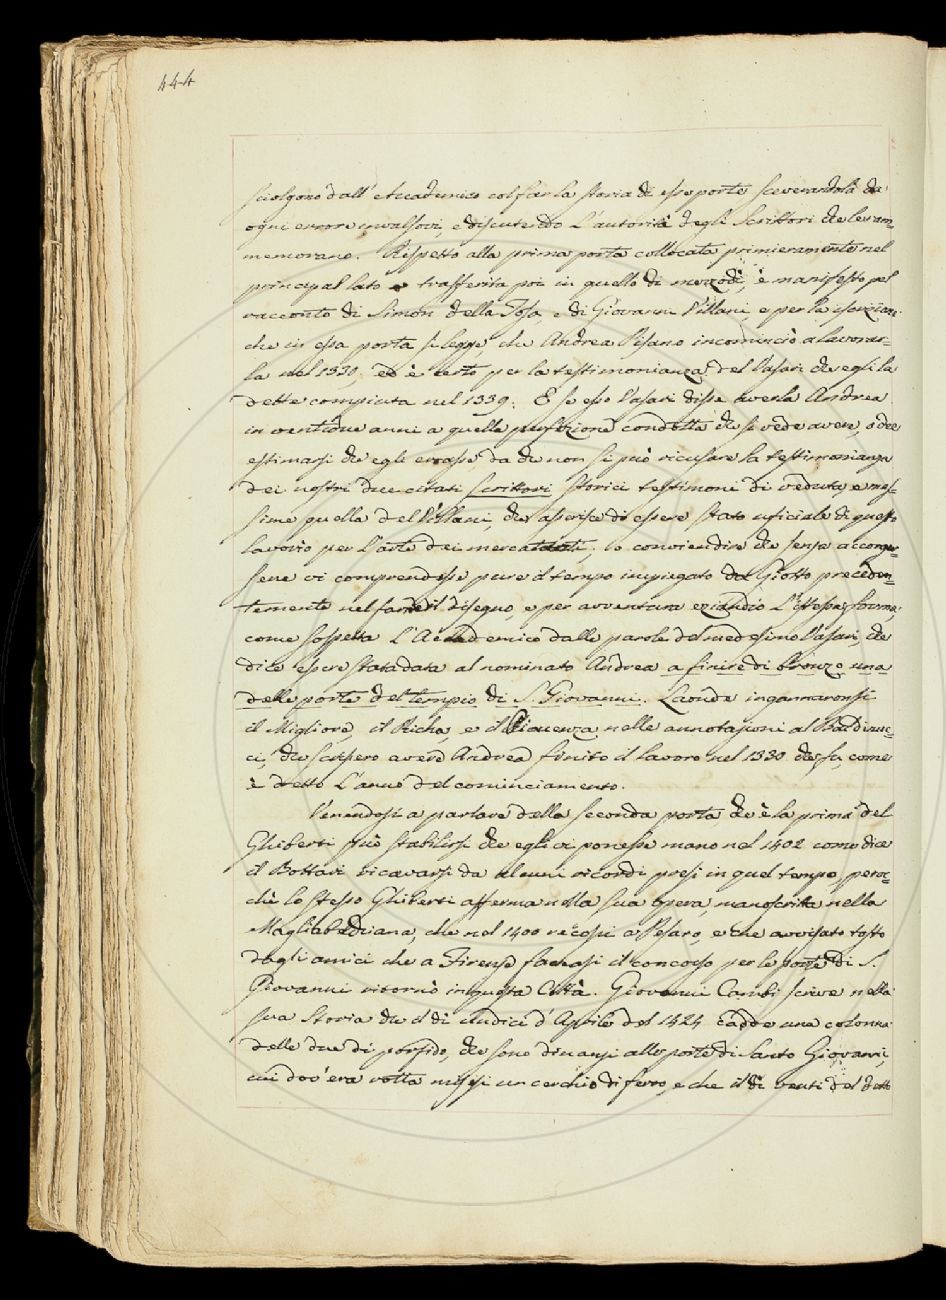 444
sciolgono dall' Accademico col far la storia di esse porte sceverandola da
ogni errore invalsovi, e discutendo l'autorità degli Scrittori che le ram=
memorano. Rispetto alla prima porta collocata primieramente nel
principal lato e trasferita poi in quello di mezzodì, è manifesto pel
racconto di Simon della Tosa, e di Giovanni Villani, e per la iscrizione
che in essa porta si legge, che Andrea Pisano incominciò a lavorar=
la nel 1330. ed è certo per la testimonianza del Vasari che egli la
dette compiuta nel 1339. E se esso Vasari disse averla Andrea
in ventidue anni a quella perfezione condotta che si vede avere, o dee
estimarsi che egli errasse da che non si può ricusare la testimonianza
dei nostri due citati Scrittori storici testimoni di veduta, e mas=
sime quella del Villani, che asserisce di essere stato uficiale di questo
lavorio per l'arte dei mercatanti; lo convien dire che senza accorger=
sene vi comprendesse pure il tempo impiegato da Giotto preceden=
temente nel farne il disegno, e per avventura eziandio l'istessa forma,
come sospetta l'Accademico dalle parole del medesimo Vasari, che
dice essere stata data al nominato Andrea a finire di bronzo una
delle porte del tempio di S. Giovanni. Laonde ingannaronsi
il Migliore, il Richa, e il Piacenza nelle annotazioni al Baldinuc=
ci, che scrissero avere Andrea finito il lavoro nel 1330 che fu, come
è detto l'anno del cominciamento.
Venendosi a parlare della seconda porta, che è la prima del
Ghiberti può stabilirsi che egli vi ponesse mano nel 1402 come dice
il Bottari ricavarsi da alcuni ricordi presi in quel tempo, peroc=
chè lo stesso Ghiberti afferma nella sua opera, manoscritta nella
Magliabechiana, che nel 1400 recossi a Pesaro, e che avvisato tosto
dagli amici che a Firenze faceasi il concorso per le porte di S.
Giovanni ritornò in questa Città. Giovanni Cambi scrive nella
sua Storia che il dì undici d'Aprile del 1424 cadde una colonna
delle due di porfido, che sono dinanzi alle porte di Santo Giovanni,
cui dov'era rotta missi un cerchio di ferro, e che il dì venti del detto